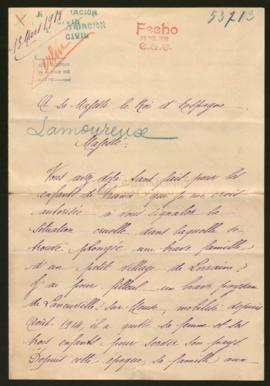 53713
13 Mars 1918
CIVIL
Berlin
Fecho
A Sa Majesté le Roi d'Espagne
Lamoureux
Majesté,
Vous avez déjà tant fait pour les
enfants de France que je me crois
autorisée à vous signaler la
situation cruelle dans laquelle se
trouve plongée une brave famille
d'un petit village de Lorraine;
J'ai pour filleul un brave paysan
de Laneuville sur Meuse, mobilisé depuis
Août 1914, il a quitté sa femme et ses
trois enfants pour servir son pays.
Depuis cette époque, sa famille aux